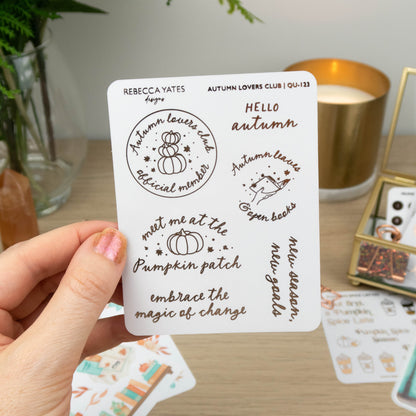 REBECCA YATES
designs
AUTUMN LOVERS CLUB | QU-123
Autumn lovers club
official member
HELLO
autumn
Autumn leaves
& open books
meet me at the
Pumpkin patch
new season,
new goals
embrace the
magic of change
Pumpkin
Spice